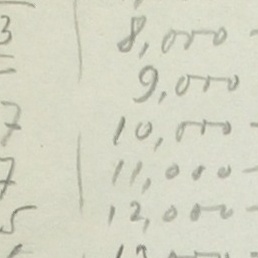 3 8,000 -
9,000
7 10,000 -
7 11,000 -
5 12,000 -